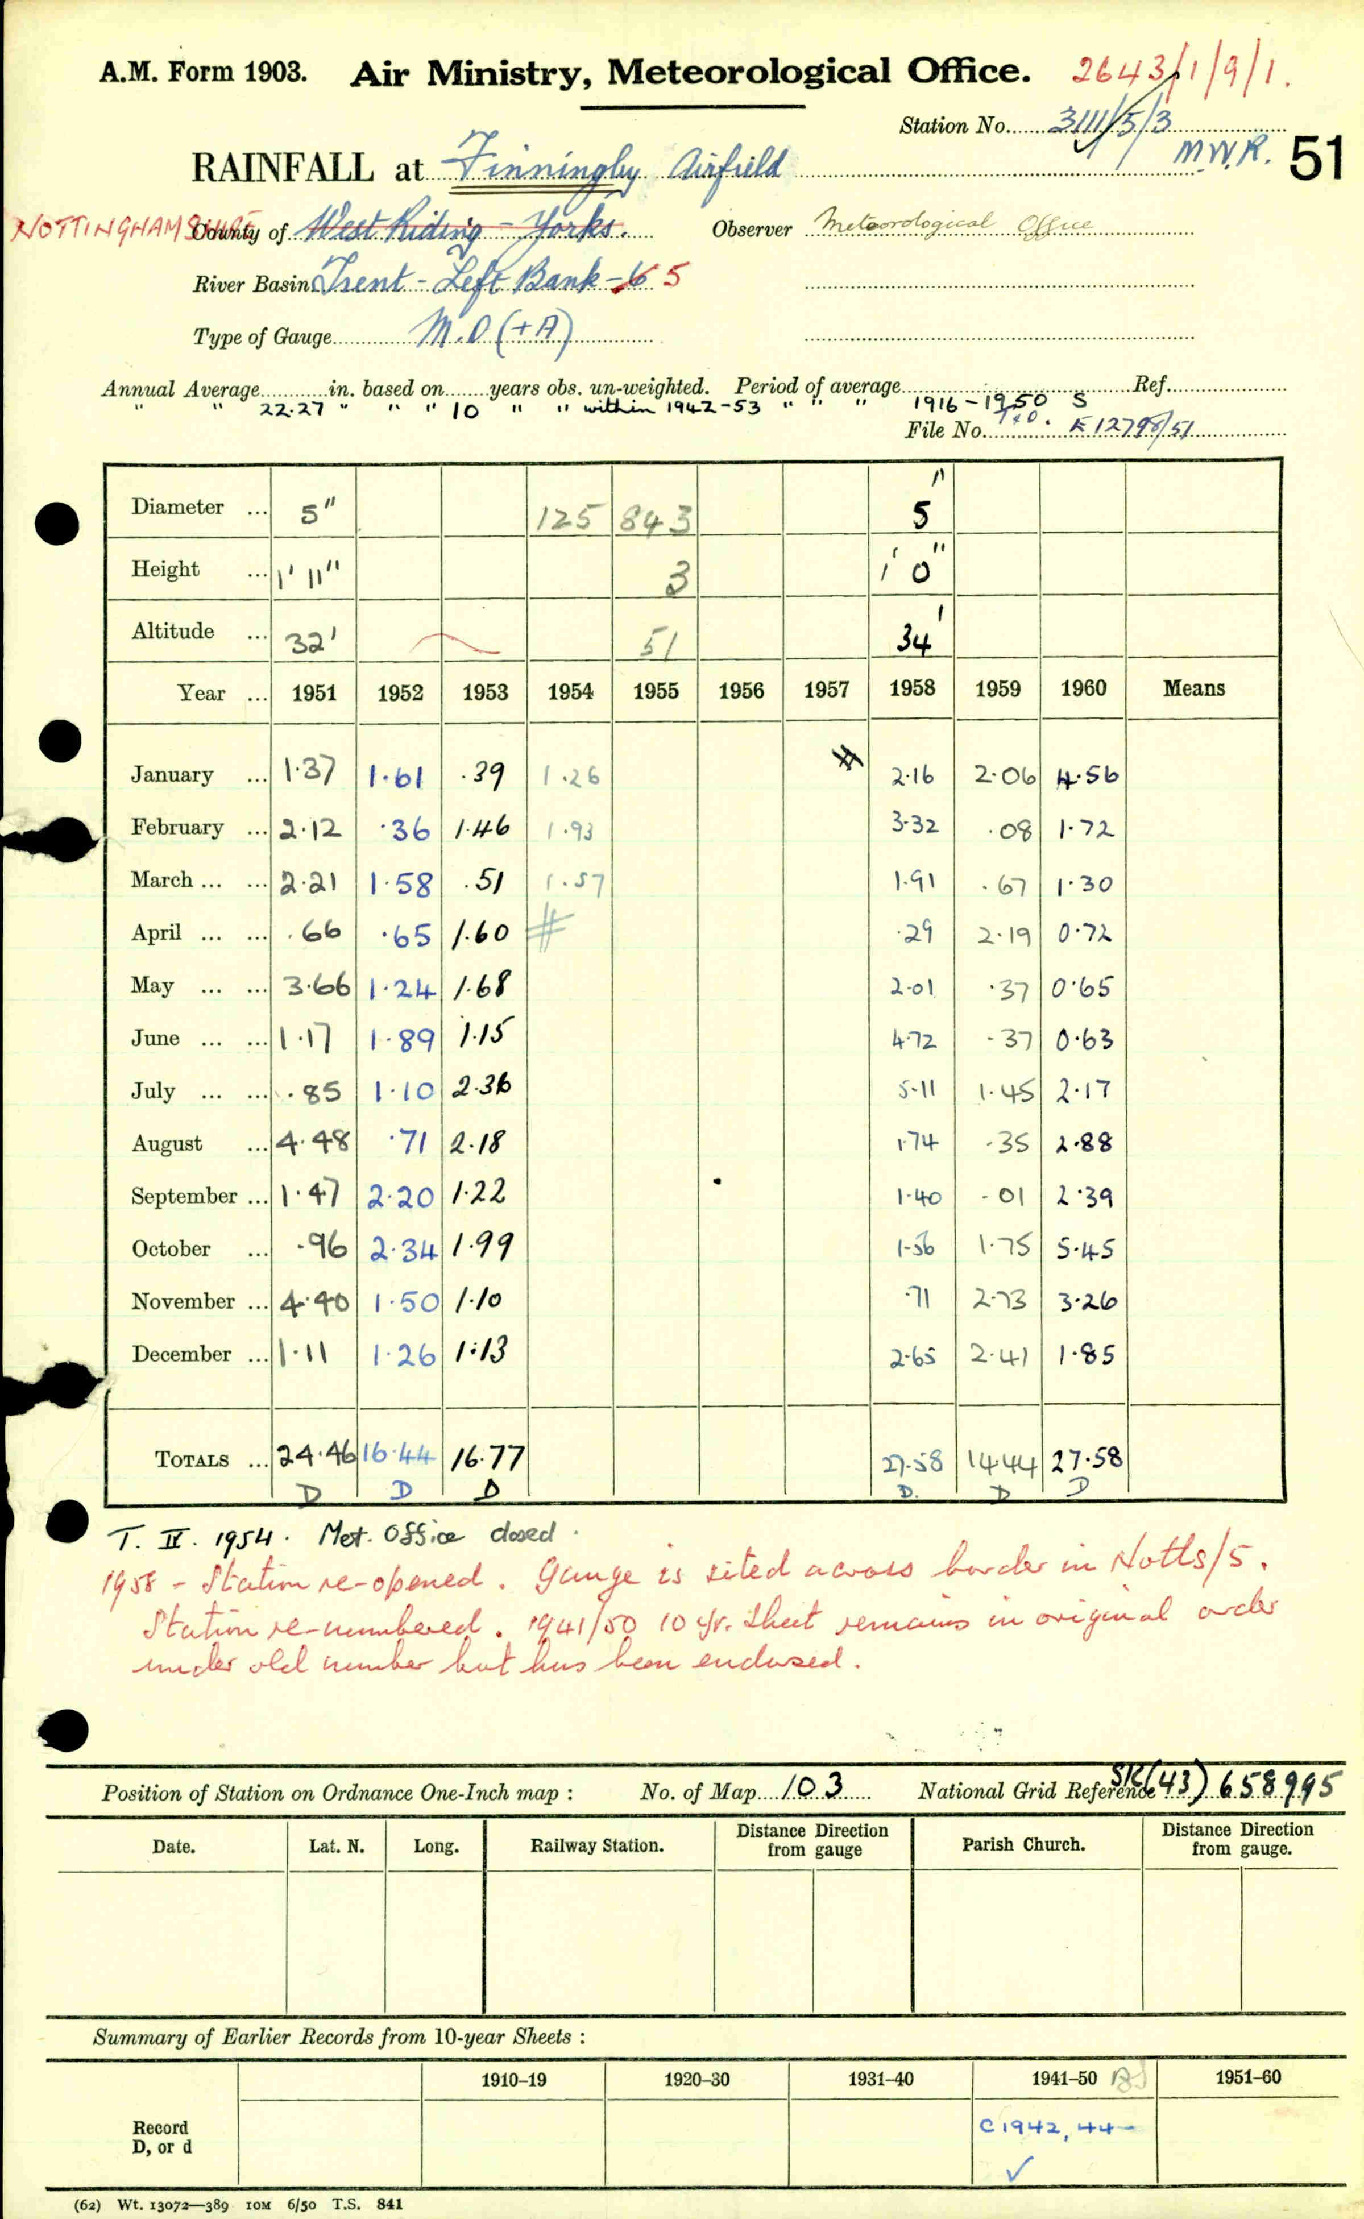 A.M. Form 1903. Air Ministry, Meteorological Office. 2643/1/9/1.
Station No. 3111/5/3
M.W.R. 51
RAINFALL at Finningley Airfield
NOTTINGHAMSHIRE County of West Riding - Yorks. Observer Meteorological Office
River Basin Trent - Left Bank - 6 5
Type of Gauge M.O (+A)
Annual Average in. based on years obs. un-weighted. Period of average Ref.
" " 22.27 " " " 10 " " within 1942-53 " " " 1916-1950 S
File No. E12798/51
Diameter ... 5" 125 843 5"
Height ... 1' 11" 3 1' 0"
Altitude ... 32' 51 34'
Year ... 1951 1952 1953 1954 1955 1956 1957 1958 1959 1960 Means
January ... 1.37 1.61 .39 1.26 # 2.16 2.06 4.56
February ... 2.12 .36 1.46 1.93 3.32 .08 1.72
March ... ... 2.21 1.58 .51 1.57 1.91 .67 1.30
April ... ... .66 .65 1.60 # .29 2.19 0.72
May ... ... 3.66 1.24 1.68 2.01 .37 0.65
June ... ... 1.17 1.89 1.15 4.72 .37 0.63
July ... ... .85 1.10 2.36 5.11 1.45 2.17
August ... 4.48 .71 2.18 1.74 .35 2.88
September ... 1.47 2.20 1.22 1.40 .01 2.39
October ... .96 2.34 1.99 1.56 1.75 5.45
November ... 4.40 1.50 1.10 .71 2.73 3.26
December ... 1.11 1.26 1.13 2.65 2.41 1.85
TOTALS ... 24.46 16.44 16.77 27.58 14.44 27.58
D D D D. D D
T. IV. 1954. Met. Office closed.
1958 - Station re-opened. Gauge is sited across border in Notts/5.
Station re-numbered. 1941/50 10 yr. sheet remains in original order
under old number but has been endorsed.
Position of Station on Ordnance One-Inch map : No. of Map 103 National Grid Reference SK(43) 658995
Date. Lat. N. Long. Railway Station. Distance Direction from gauge Parish Church. Distance Direction from gauge.
Summary of Earlier Records from 10-year Sheets :
1910-19 1920-30 1931-40 1941-50 1951-60
Record D, or d C 1942, 44-
✓
(62) Wt. 13072—389 10M 6/50 T.S. 841